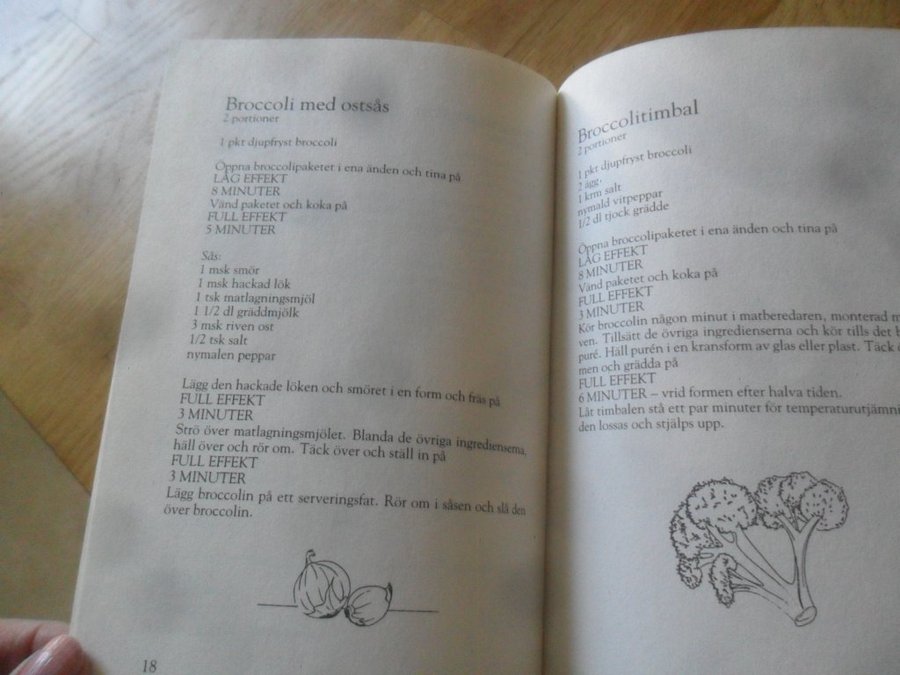 Broccoli med ostsås
2 portioner
1 pkt djupfryst broccoli
Öppna broccolipaketet i ena änden och tina på
LÅG EFFEKT
8 MINUTER
Vänd paketet och koka på
FULL EFFEKT
5 MINUTER
Sås:
1 msk smör
1 msk hackad lök
1 tsk matlagningsmjöl
1 1/2 dl gräddmjölk
3 msk riven ost
1/2 tsk salt
nymalen peppar
Lägg den hackade löken och smöret i en form och fräs på
FULL EFFEKT
3 MINUTER
Strö över matlagningsmjölet. Blanda de övriga ingredienserna,
häll över och rör om. Täck över och ställ in på
FULL EFFEKT
3 MINUTER
Lägg broccolin på ett serveringsfat. Rör om i såsen och slå den
över broccolin.
18
Broccolitimbal
2 portioner
1 pkt djupfryst broccoli
2 ägg.
1 krm salt
nymald vitpeppar
1/2 dl tjock grädde
Öppna broccolipaketet i ena änden och tina på
LÅG EFFEKT
8 MINUTER
Vänd paketet och koka på
FULL EFFEKT
3 MINUTER
Kör broccolin någon minut i matberedaren, monterad m
ven. Tillsätt de övriga ingredienserna och kör tills det b
puré. Häll purén i en kransform av glas eller plast. Täck
men och grädda på
FULL EFFEKT
6 MINUTER – vrid formen efter halva tiden.
Låt timbalen stå ett par minuter för temperaturutjämni
den lossas och stjälps upp.